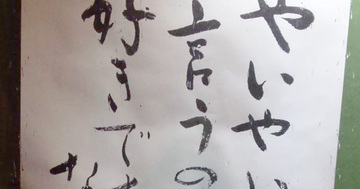 やいや
言うの
好きです